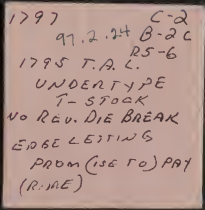 1797 C-2
97.2.24 B-2c
R5-6
1795 T.A.L.
UNDERTYPE
T-STOCK
NO REV. DIE BREAK
EDGE LETTING
PROM(ISE TO) PAY
(RARE)